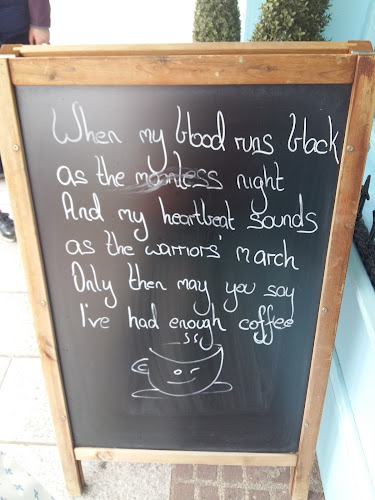 When my blood runs black
as the moonless night
And my heartbeat sounds
as the warriors' march
Only then may you say
I've had enough coffee